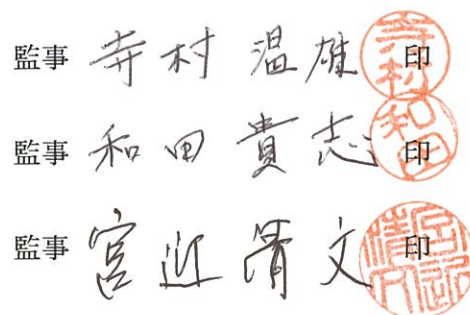 監事 寺村 温雄 印
監事 和田 貴志 印
監事 宮近 清文 印